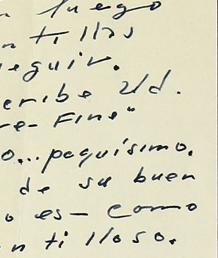 n luego
n ti llos
eguir.
cribe Ud.
re- Fine"
o...poquísimo.
de su buen
o es- como
n ti lloso.